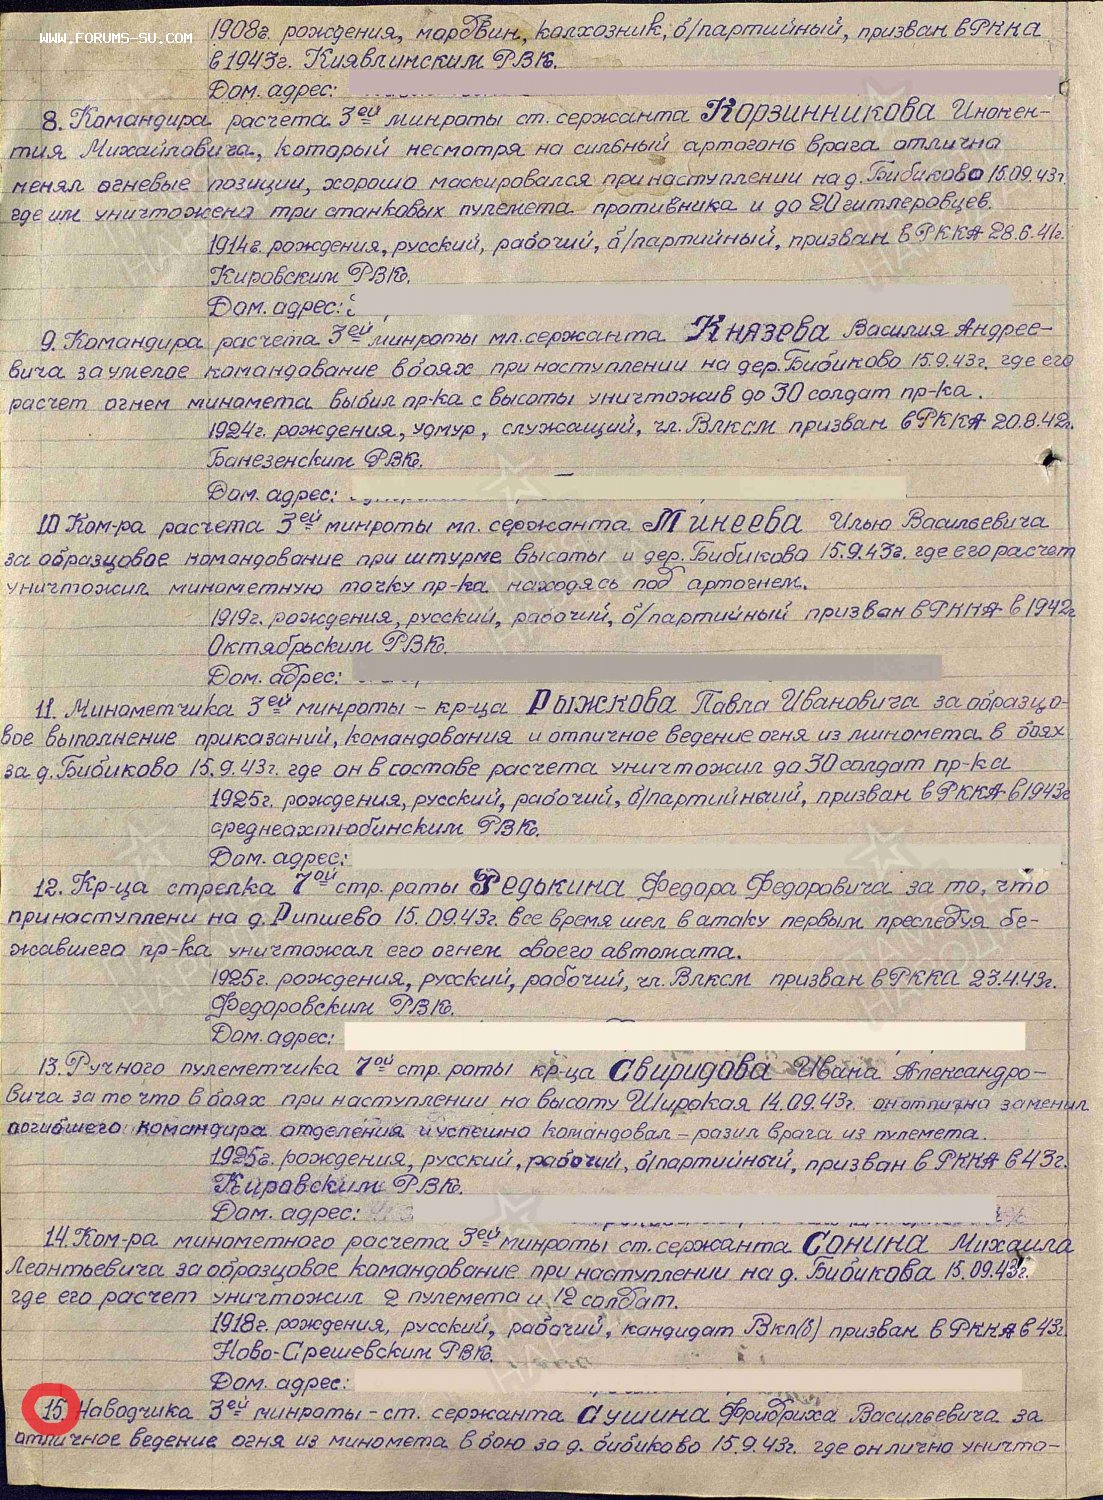 WWW.FORUMS-SU.COM
1908г. рождения, мордвин, колхозник, б/партийный, призван в РККА
в 1943г. Киявлинским РВК.
Дом. адрес:
8. Командира расчета 3ей минроты ст. сержанта Корзинникова Инокен-
тия Михайловича, который несмотря на сильный артогонь врага отлично
менял огневые позиции, хорошо маскировался при наступлении на д. Бибиково 15.09.43г.
где им уничтожено три станковых пулемета противника и до 20 гитлеровцев.
1914г. рождения, русский, рабочий, б/партийный, призван в РККА 28.6.41г.
Кировским РВК.
Дом. адрес:
9. Командира расчета 3ей минроты мл. сержанта Князева Василия Андрее-
вича за умелое командование в боях при наступлении на дер. Бибиково 15.9.43г. где его
расчет огнем миномета выбил пр-ка с высоты уничтожив до 30 солдат пр-ка.
1924г. рождения, удмур, служащий, чл. Влксм призван в РККА 20.8.42г.
Банезенским РВК.
Дом. адрес:
10 Ком-ра расчета 3ей минроты мл. сержанта Минеева Илью Васильевича
за образцовое командование при штурме высоты и дер. Бибиково 15.9.43г. где его расчет
уничтожил минометную точку пр-ка находясь под артогнем.
1919г. рождения, русский, рабочий, б/партийный призван в РККА в 1942г
Октябрьским РВК.
Дом. адрес:
11. Минометчика 3ей минроты - кр-ца Рыжкова Павла Ивановича за образцо-
вое выполнение приказаний, командования и отличное ведение огня из миномета в боях
за д. Бибиково 15.9.43г. где он в составе расчета уничтожил до 30 солдат пр-ка
1925г. рождения, русский, рабочий, б/партийный, призван в РККА в 1943г
среднеахтюбинским РВК.
Дом. адрес:
12. Кр-ца стрелка 7ой стр. роты Редькина Федора Федоровича за то, что
при наступлени на д. Рипшево 15.09.43г. все время шел в атаку первым преследуя бе-
жавшего пр-ка уничтожал его огнем своего автомата.
1925г. рождения, русский, рабочий, чл. Влксм призван в РККА 23.4.43г.
Федоровским РВК.
Дом. адрес:
13. Ручного пулеметчика 7ой стр. роты кр-ца Свиридова Ивана Александро-
вича за то что в боях при наступлении на высоту Широкая 14.09.43г. он отлично заменил
погибшего командира отделения и успешно командовал - разил врага из пулемета.
1925г. рождения, русский, рабочий, б/партийный, призван в РККА в 43г.
Кировским РВК.
Дом. адрес:
14. Ком-ра минометного расчета 3ей минроты ст. сержанта Сонина Михаила
Леонтьевича за образцовое командование при наступлении на д. Бибикова 15.09.43г.
где его расчет уничтожил 2 пулемета и 12 солдат.
1918г. рождения, русский, рабочий, кандидат Вкп(б) призван в РККА в 43г.
Ново-Срешевским РВК.
Дом. адрес:
15. Наводчика 3ей минроты - ст. сержанта Сушина Фридриха Васильевича за
отличное ведение огня из миномета в бою за д. бибиково 15.9.43г. где он лично уничто-